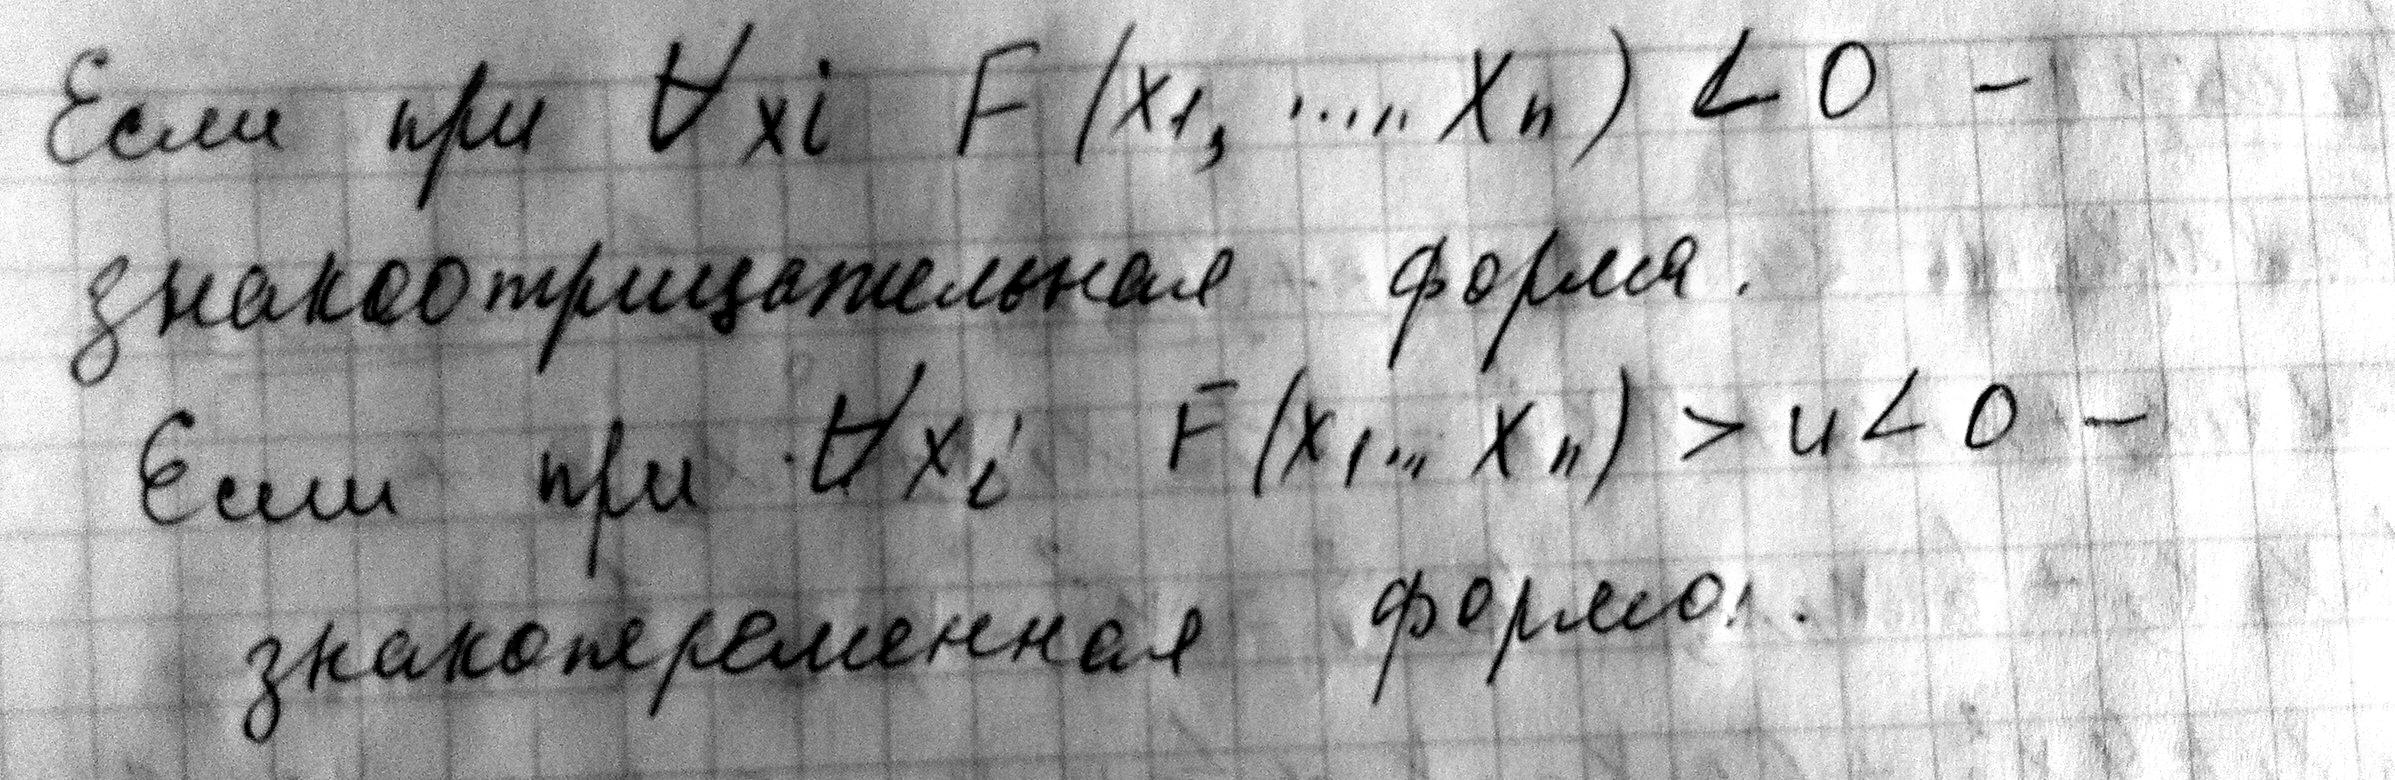 Если при ∀xi F(x1, ..... xn) < 0 –
знакоотрицательная форма.
Если при ∀xi F(x1... xn) > и < 0 –
знакопеременная форма.